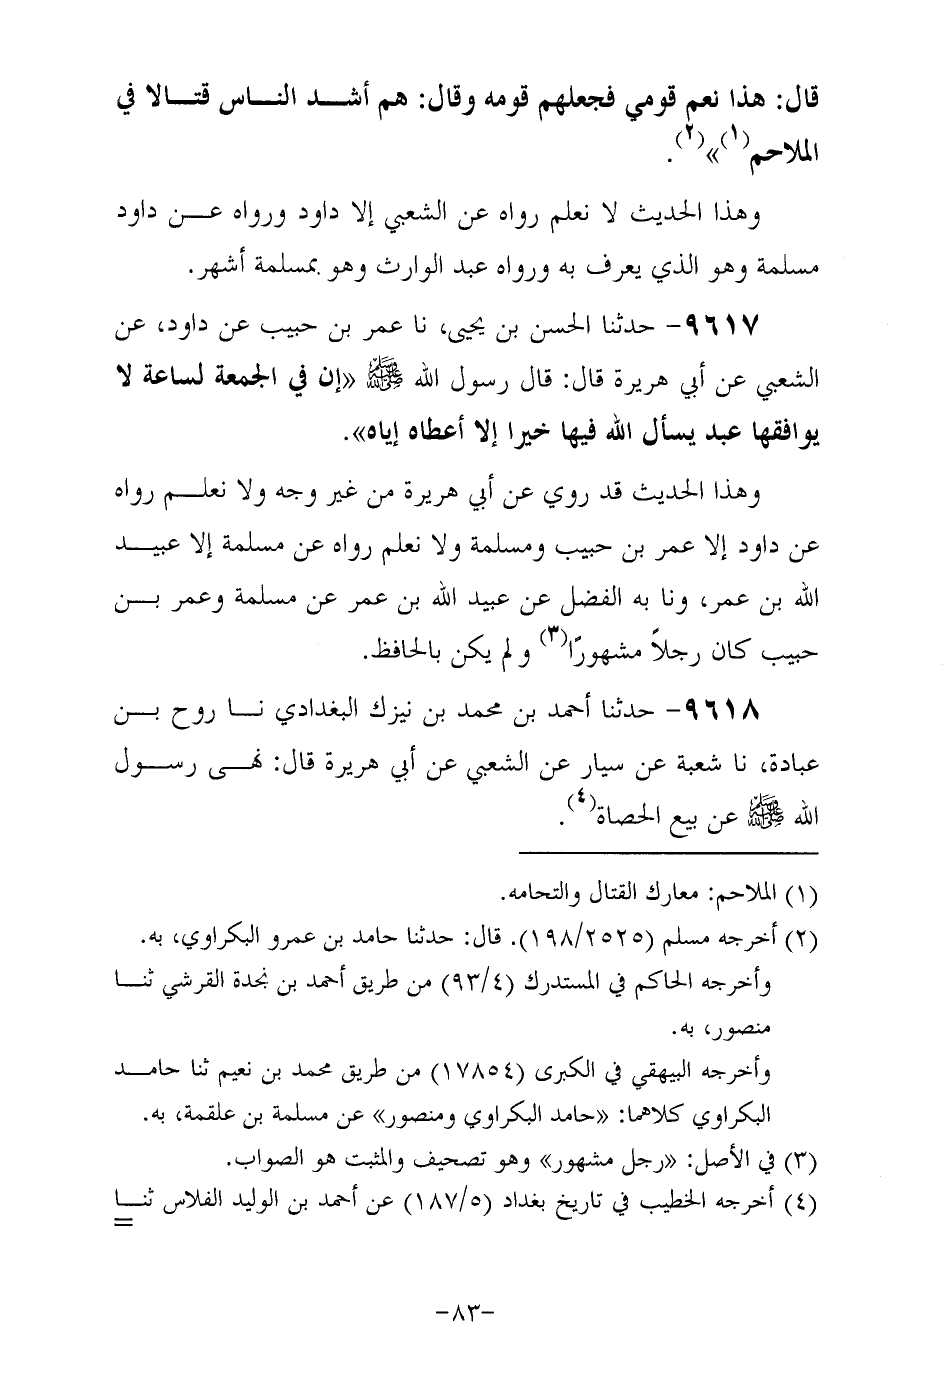 قال: هذا نعم قومي فجعلهم قومه وقال: هم أشد الناس قتالا في
الملاحم(١)»(٢).
وهذا الحديث لا نعلم رواه عن الشعبي إلا داود ورواه عن داود
مسلمة وهو الذي يعرف به ورواه عبد الوارث وهو بمسلمة أشهر.
٩٦١٧- حدثنا الحسن بن يحيى، نا عمر بن حبيب عن داود، عن
الشعبي عن أبي هريرة قال: قال رسول الله ﷺ «إن في الجمعة لساعة لا
يوافقها عبد يسأل الله فيها خيرا إلا أعطاه إياه».
وهذا الحديث قد روي عن أبي هريرة من غير وجه ولا نعلم رواه
عن داود إلا عمر بن حبيب ومسلمة ولا نعلم رواه عن مسلمة إلا عبيد
الله بن عمر، ونا به الفضل عن عبيد الله بن عمر عن مسلمة وعمر بن
حبيب كان رجلاً مشهورًا(٣) و لم يكن بالحافظ.
٩٦١٨- حدثنا أحمد بن محمد بن نيزك البغدادي نا روح بن
عبادة، نا شعبة عن سيار عن الشعبي عن أبي هريرة قال: نهى رسول
الله ﷺ عن بيع الحصاة(٤).
(١) الملاحم: معارك القتال والتحامه.
(٢) أخرجه مسلم (١٩٨/٢٥٢٥). قال: حدثنا حامد بن عمرو البكراوي، به.
وأخرجه الحاكم في المستدرك (٩٣/٤) من طريق أحمد بن نجدة القرشي ثنا
منصور، به.
وأخرجه البيهقي في الكبرى (١٧٨٥٤) من طريق محمد بن نعيم ثنا حامد
البكراوي كلاهما: «حامد البكراوي ومنصور» عن مسلمة بن علقمة، به.
(٣) في الأصل: «رجل مشهور» وهو تصحيف والمثبت هو الصواب.
(٤) أخرجه الخطيب في تاريخ بغداد (١٨٧/٥) عن أحمد بن الوليد الفلاس ثنا
=
-٨٣-